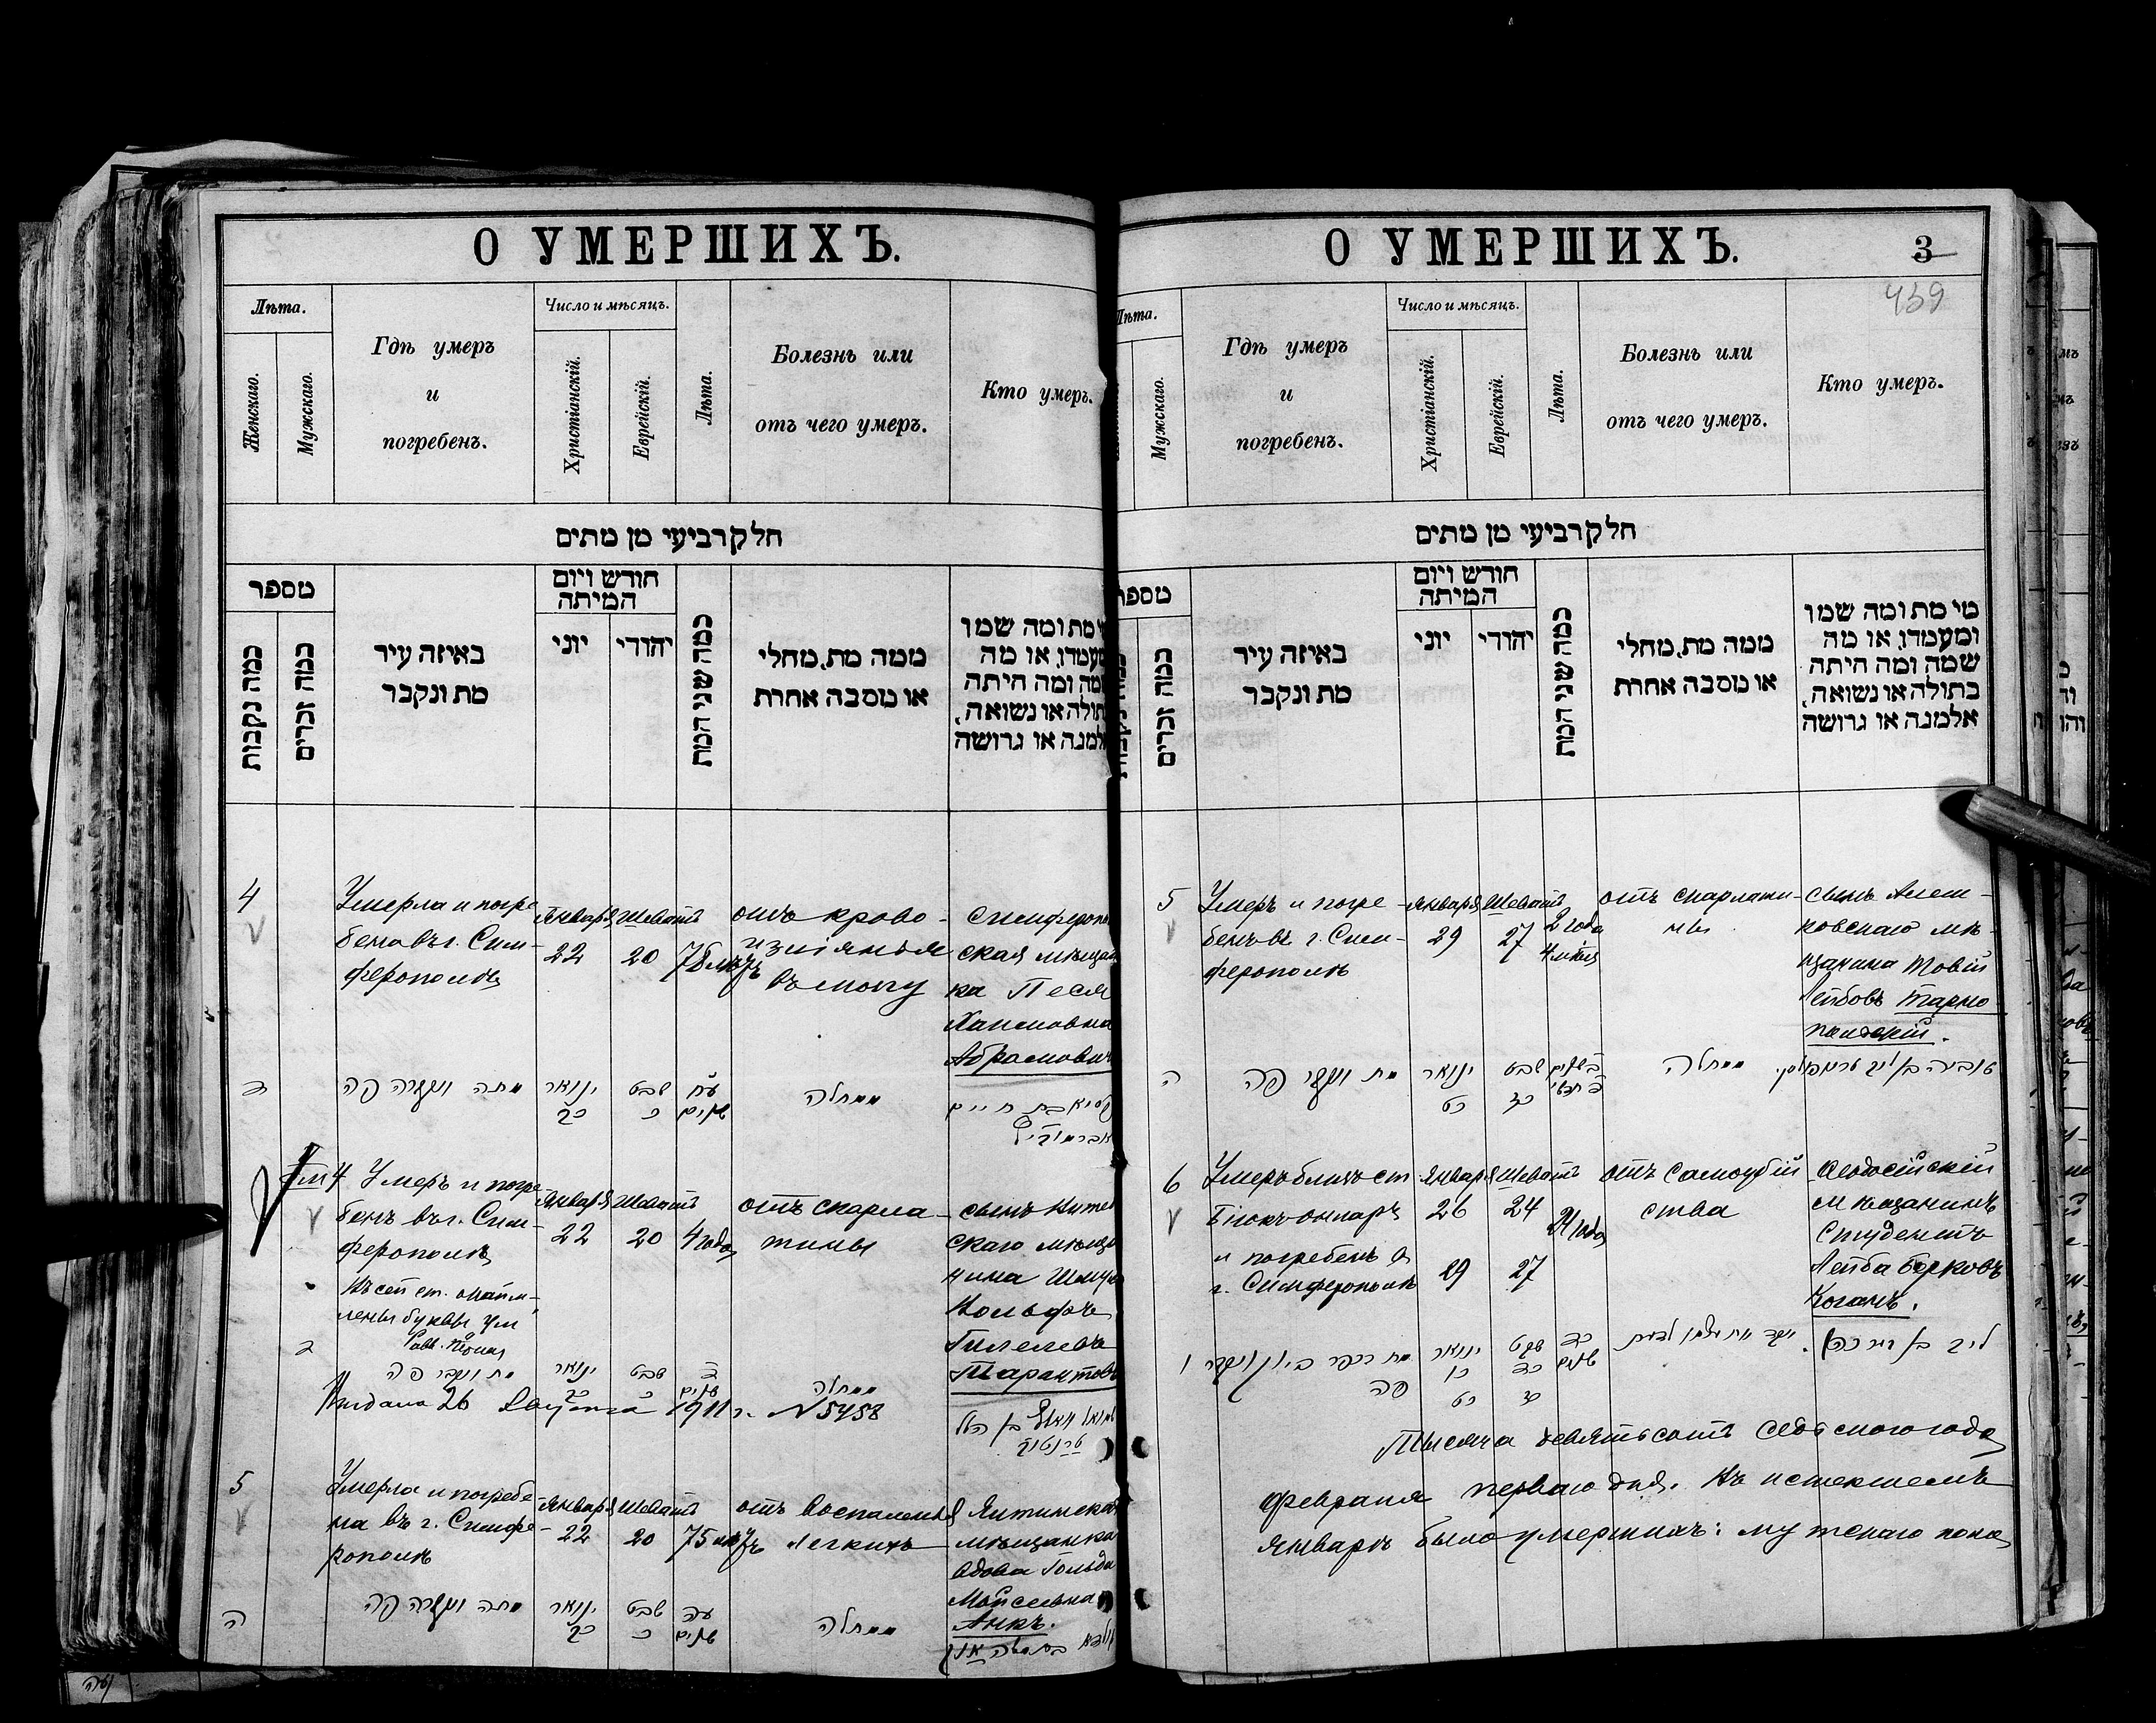 О УМЕРШИХЪ.
Лѣта.
Женскаго.
Мужскаго.
Гдѣ умеръ
и
погребенъ.
Число и мѣсяцъ.
Христіанскій.
Еврейскій.
Лѣта.
Болезнь или
отъ чего умеръ.
Кто умеръ.
חלק רביעי מן מתים
מספר
כמה נקבות
כמה זכרים
באיזה עיר
מת ונקבר
חודש ויום
המיתה
יוני
יהודי
כמה שני המת
ממה מת, מחלי
או מסבה אחרת
מת ומה שמו
או מה
ומה היתה
או נשואה,
או גרושה
4
Умерла и погре
бена въ г. Сим-
ферополѣ
Января
22
Шеватъ
20
78 лѣтъ
отъ крово-
изліянія
въ мозгу
симферополь
ская мѣщан
ка Песя
Хаимовна
Абрамович
מתה ונקברה פה
ינואר
כב
שבט
כ
עח
שנים
ממחלה
בת חיים
אברמוביץ
ум 4
Умеръ и погре
бенъ въ г. Сим-
ферополѣ
Января
22
Шеватъ
20
4 года
отъ скарла-
тины
сынъ
скаго мѣща
нина
Вольфъ
Гилелевъ
Тарантовъ
Въ сей ст.
буквы ум
Равв.
ד
מת ונקבר פה
ינואר
כב
שבט
כ
ד
שנים
ממחלה
בן הלל
Выдана 26 1911 г. № 5458
5
Умерла и погребе
на въ г. Симфе-
рополѣ
Января
22
Шеватъ
20
75 лѣтъ
отъ воспаленія
легкихъ
Ялтинская
мѣщанка
вдова Гольда
Мойсеевна
Анкъ.
ה
מתה ונקברה פה
ינואר
כב
שבט
כ
עה
שנים
ממחלה
О УМЕРШИХЪ.
3
439
Лѣта.
Мужскаго.
Гдѣ умеръ
и
погребенъ.
Число и мѣсяцъ.
Христіанскій.
Еврейскій.
Лѣта.
Болезнь или
отъ чего умеръ.
Кто умеръ.
חלק רביעי מן מתים
מספר
כמה זכרים
באיזה עיר
מת ונקבר
חודש ויום
המיתה
יוני
יהודי
כמה שני המת
ממה מת, מחלי
או מסבה אחרת
מי מת ומה שמו
ומעמדו, או מה
שמה ומה היתה
בתולה או נשואה,
אלמנה או גרושה
5
Умеръ и погре-
бенъ въ г. Сим-
ферополѣ
Января
29
Шеватъ
27
2 года
4 мѣсяц
отъ скарлати-
ны
сынъ Алеш-
ковскаго мѣ-
щанина Товій
Лейбовъ Тарно
польскій.
ה
מת ונקבר פה
ינואר
כט
שבט
כז
ב שנים
ממחלה
טוביה בן ליב
6
Умеръ близъ ст.
Біюкъ-онларъ
и погребенъ въ
г. Симферополѣ
Января
26
29
Шеватъ
24
27
24 года
отъ самоубій
ства
Феодосійскій
мѣщанинъ
Студентъ
Лейба Берковъ
Коганъ.
ו
פה
ינואר
כו
כט
שבט
כד
כז
כד
שנים
ליב בן
Тысяча девятьсотъ седьмого года
февраля перваго дня. Въ истекшемъ
январѣ было умершихъ: мужскаго пола